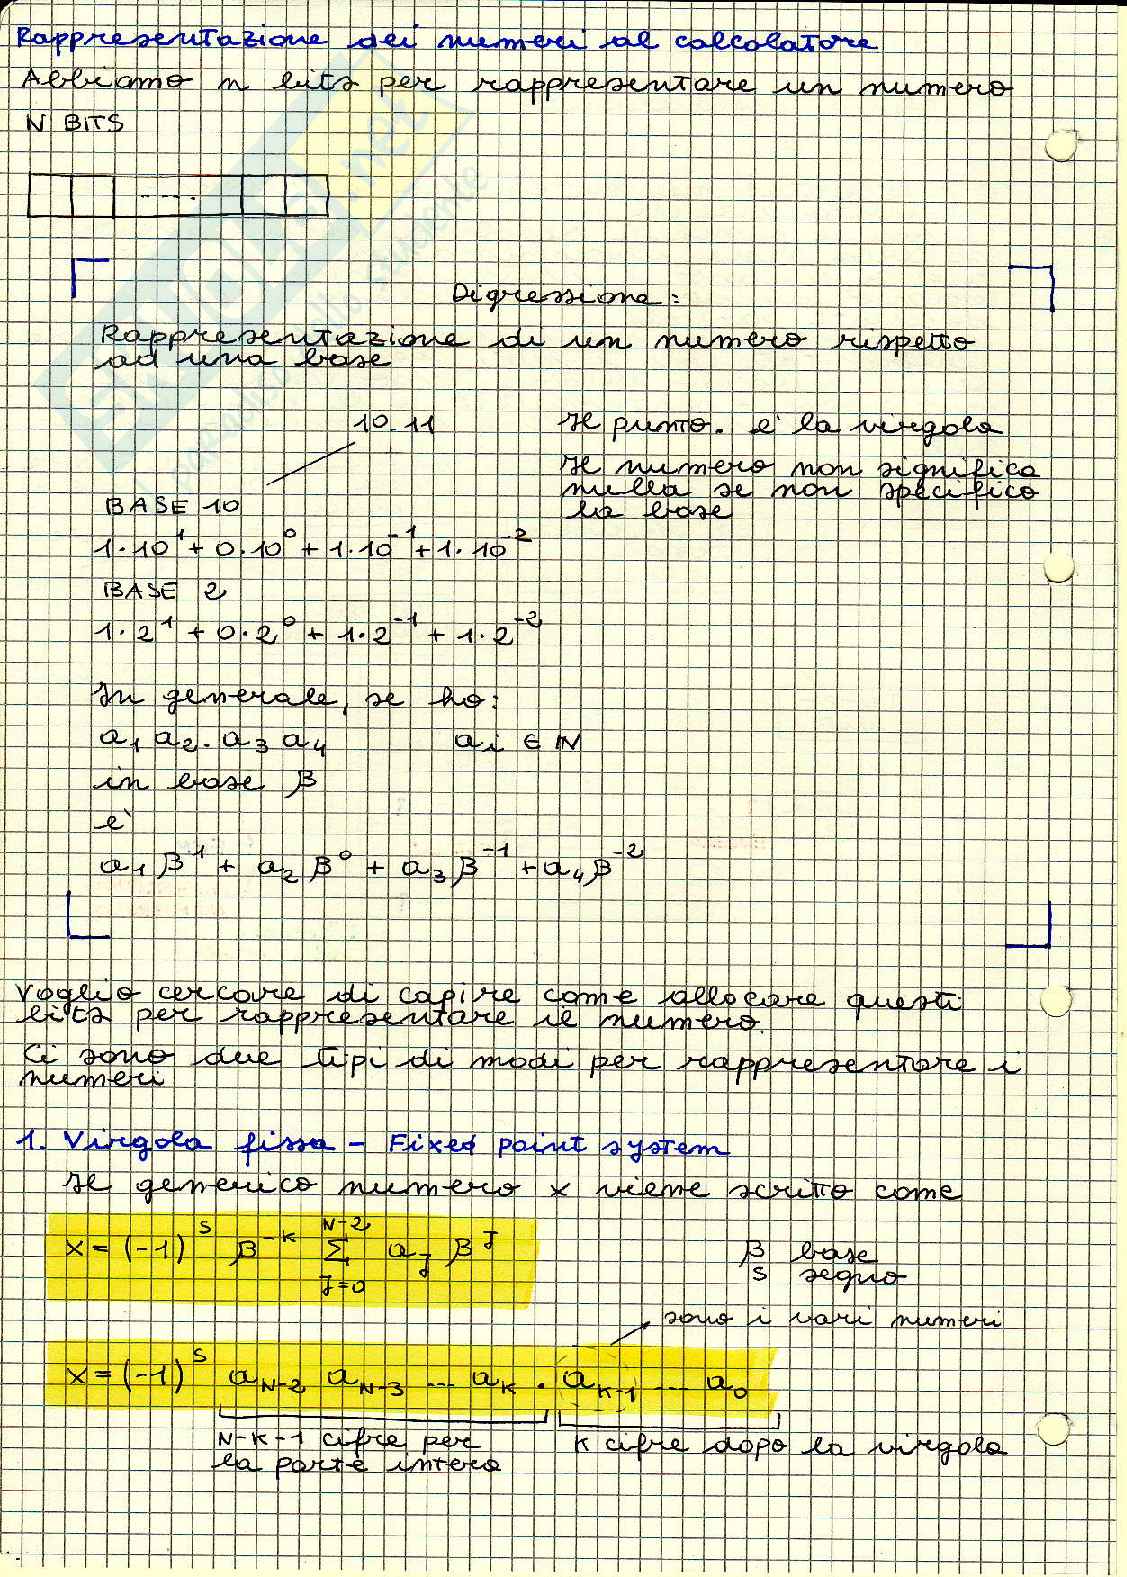 Rappresentazione dei numeri al calcolatore
Abbiamo n bits per rappresentare un numero
N BITS
Digressione:
Rappresentazione di un numero rispetto
ad una base
10.11
Il punto. è la virgola
Il numero non significa
nulla se non specifico
la base
BASE 10
1·10¹ + 0·10⁰ + 1·10⁻¹ + 1·10⁻²
BASE 2
1·2¹ + 0·2⁰ + 1·2⁻¹ + 1·2⁻²
In generale, se ho:
a₁ a₂. a₃ a₄ aᵢ ∈ N
in base β
è
a₁β¹ + a₂β⁰ + a₃β⁻¹ + a₄β⁻²
Voglio cercare di capire come allocare questi
bits per rappresentare il numero.
Ci sono due tipi di modi per rappresentare i
numeri
1. Virgola fissa - Fixed point system
Il generico numero x viene scritto come
x = (-1)^S β^-K Σ_{J=0}^{N-2} a_J β^J
β base
S segno
sono i vari numeri
x = (-1)^S a_{N-2} a_{N-3} ... a_K . a_{K-1} ... a_0
N-K-1 cifre per
la parte intera
K cifre dopo la virgola